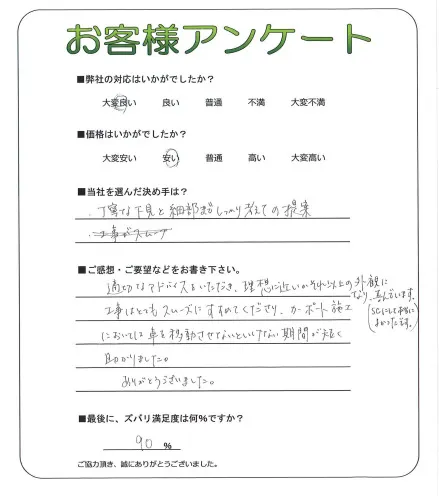 お客様アンケート
■弊社の対応はいかがでしたか？
大変良い 良い 普通 不満 大変不満
■価格はいかがでしたか？
大変安い 安い 普通 高い 大変高い
■当社を選んだ決め手は？
・丁寧な下見と細部までしっかり考えての提案
・工事がスムーズ
■ご感想・ご要望などをお書き下さい。
適切なアドバイスをいただき、理想に近いかそれ以上の外観に
なり、喜んでいます。
工事はとてもスムーズにすすめてくださり、カーポート施工
(SCにして本当に
よかったです。)
においては車を移動させてないといけない期間が短く
助かりました。
ありがとうございました。
■最後に、ズバリ満足度は何%ですか？
90 %
ご協力頂き、誠にありがとうございました。